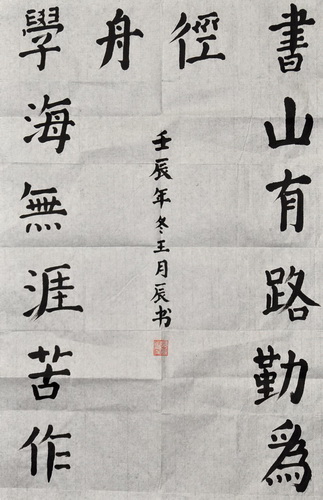 書山有路勤為
徑
舟
學海無涯苦作
壬辰年冬王月辰书